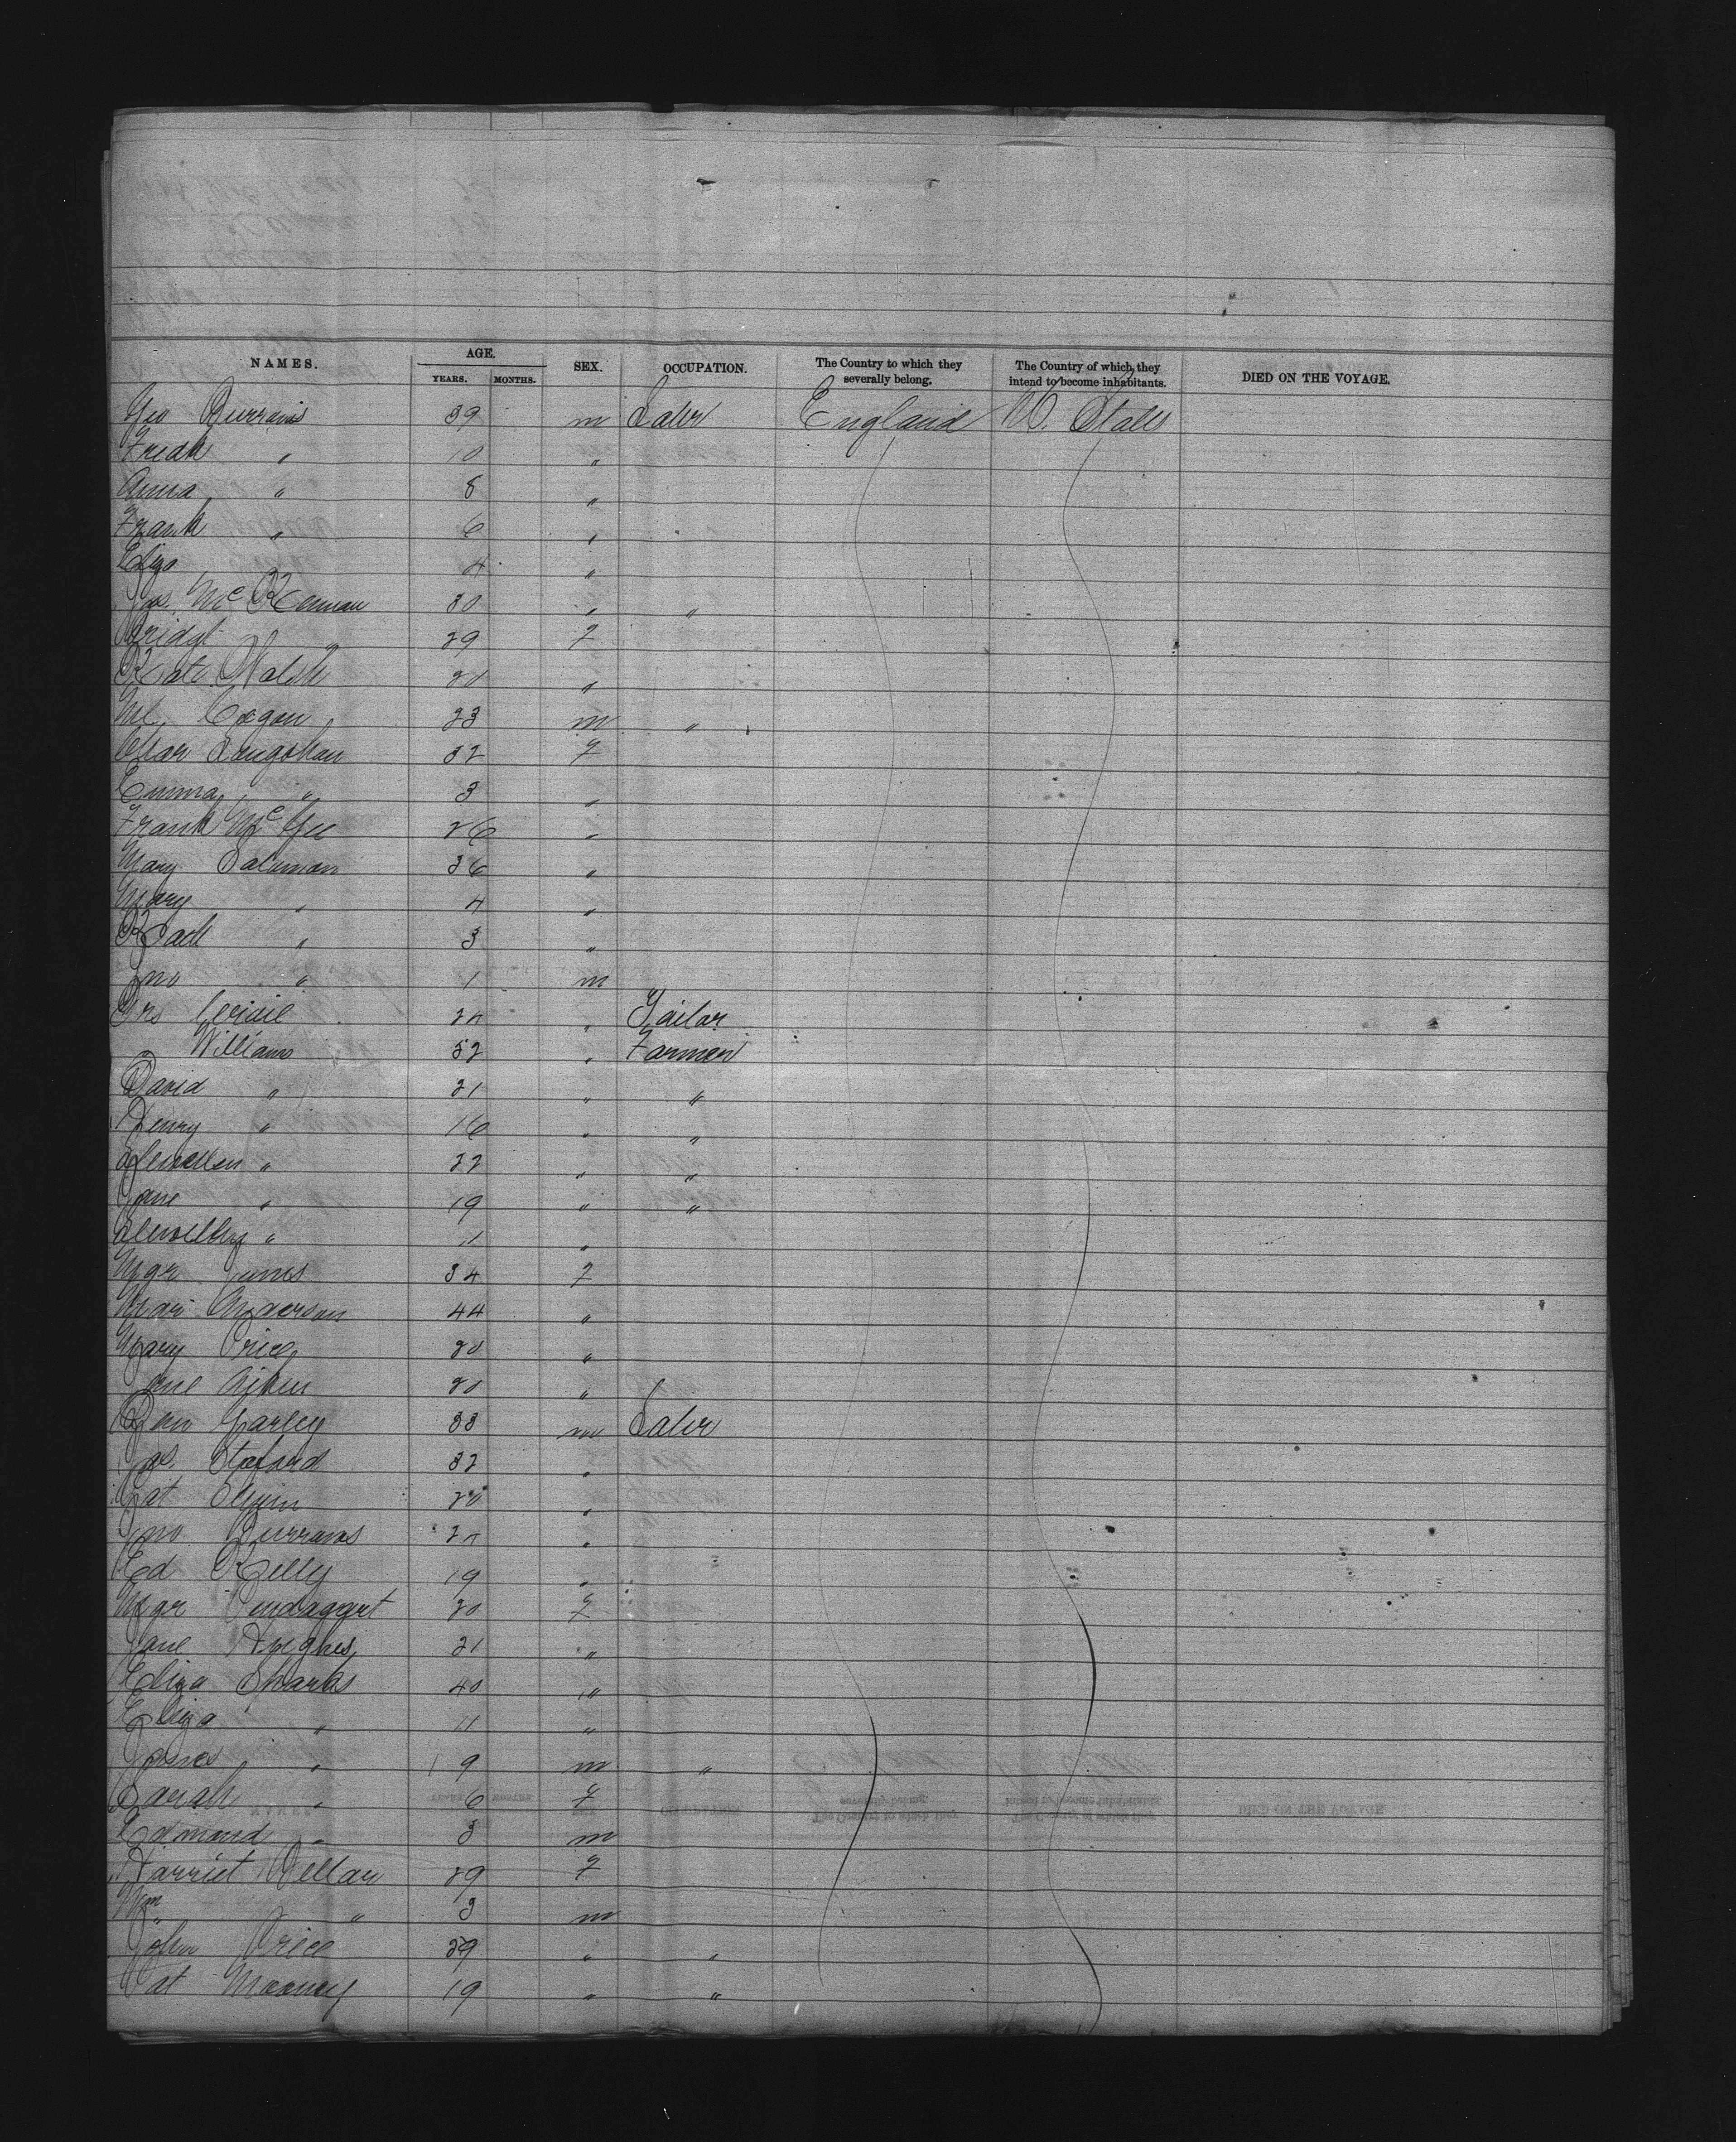 NAMES. AGE. YEARS. MONTHS. SEX. OCCUPATION. The Country to which they severally belong. The Country of which they intend to become inhabitants. DIED ON THE VOYAGE.
Geo Burrows 39 m Labr England U. States
Fredk " 10 "
Anna " 8 "
Frank " 6 "
Eliza 4 "
Jas. McKennan 30 " "
Bridgt " 29 F
Kate Walsh 20 "
Ml. Cogan 23 m "
Langshan 32 F
Emma " 3 "
Frank McGee 26 "
Mary Saloman 36 "
Mary " 4 "
" 3 "
Jno " 1 m
" Tailor
Williams 52 " Farmer
David " 21 " "
Henry " 16 " "
Llewellen " 22 " "
Jane " 19 " "
" 11 "
Mgr Jones 34 F
Mar Anderson 44 "
Mary Price 20 "
Jane Aiken 20 "
Ben Yarley 33 m Labr
Jas. Stafford 32 "
Pat 20 "
Jno Burrows "
Ed Kelly 19 "
Mgr 20 F
Jane Hughes 21 "
Eliza Sharks 40 "
Eliza " 11 "
James " 9 m "
Sarah " 6 F
Edmond " 3 m
Harriet Wellan 29 F
Wm " 3 m
John Price 29 " "
Pat Mooney 19 " "